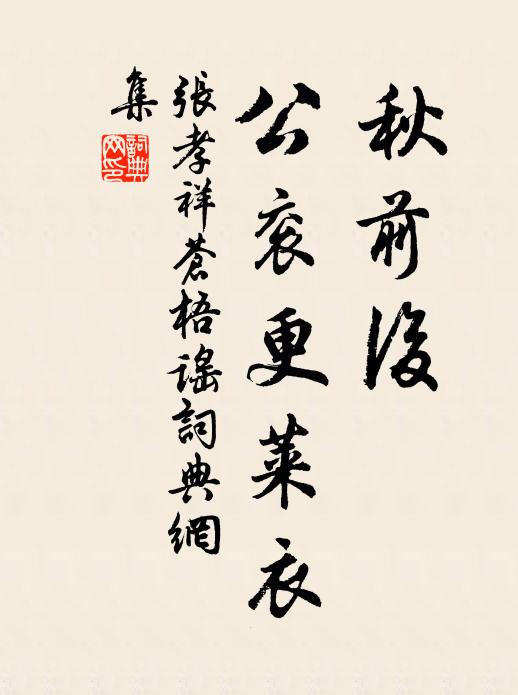 秋前後
公袞更萊衣
張孝祥蒼梧謠詞典網
集
詞典網印